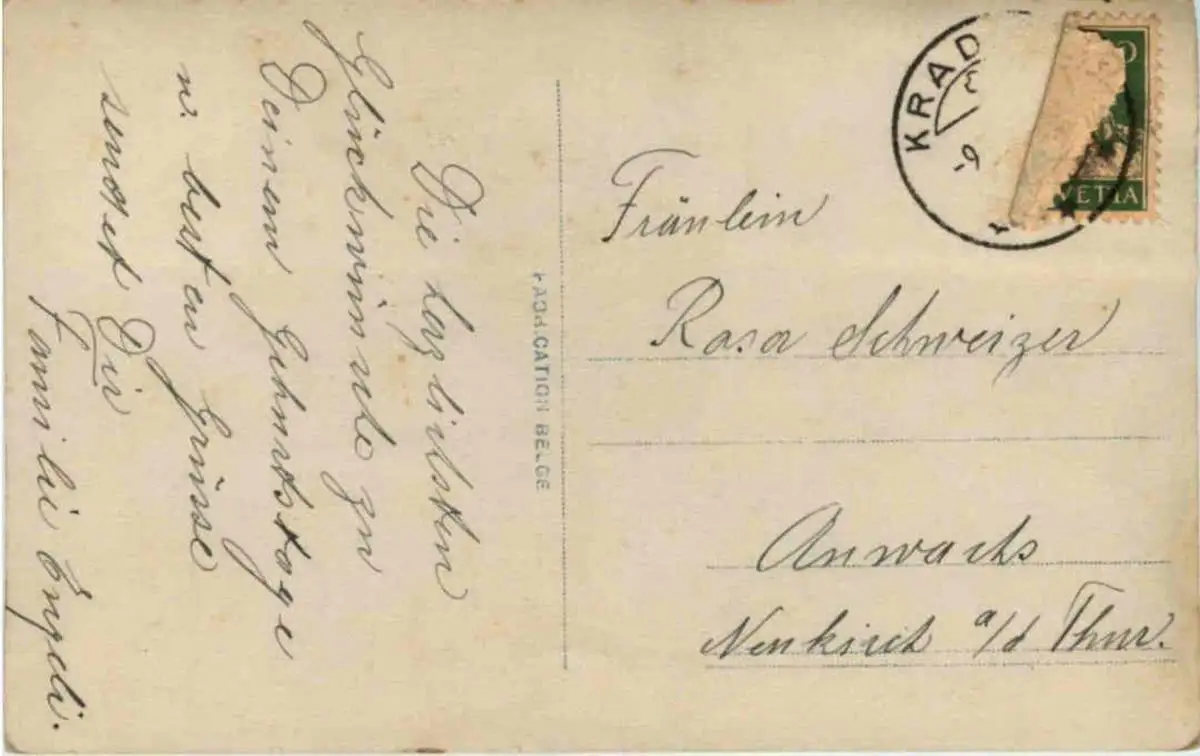 Die herzlichsten
Glückwünsche zu
Deinem Geburtstage
u. besten Grüsse
sendet Dir
Familie Engeli.
FABRICATION BELGE
KRAD
VETIA
Fräulein
Rosa Schweizer
Anwachs
Neukirch a/d Thur.